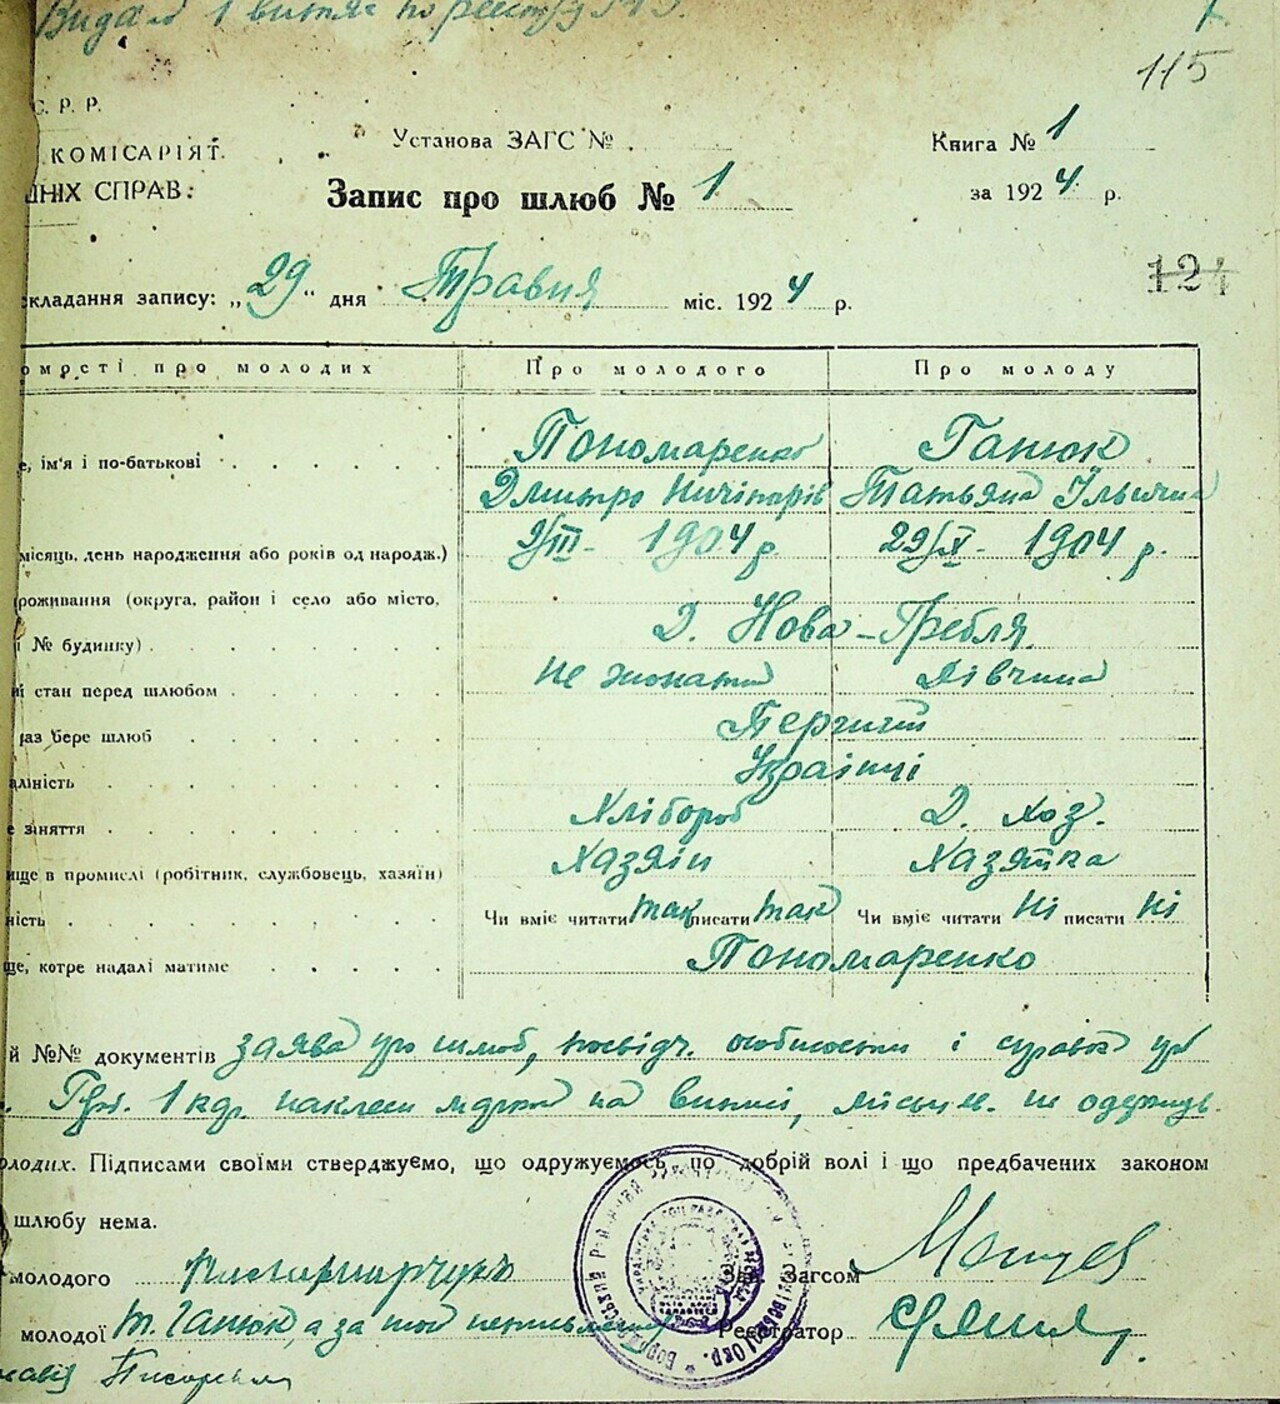 Видано 1 витяг по реєстру
115
С. Р. Р.
КОМІСАРІЯТ.
ШНІХ СПРАВ.
Установа ЗАГС №
Книга № 1
Запис про шлюб № 1
за 1924 р.
складання запису: „29“ дня Травня міс. 1924 р.
124
омості про молодих Про молодого Про молоду
е, ім'я і по-батькові Пономаренко Ганюк
Дмитро Ничіпорів Татьяна Їльична
місяць, день народження або років од народж.) 9/III- 1904 р. 29/X- 1904 р.
роживання (округа, район і село або місто,
і № будинку) Д. Нова-Гребля
й стан перед шлюбом не жонатий Дівчина
раз бере шлюб Первий
альність Українці
е заняття Хлібороб Д. хоз.
ище в промислі (робітник, службовець, хазяїн) Хазяїн Хазяйка
ність Чи вміє читати так писати так Чи вміє читати Ні писати Ні
ще, котре надалі матиме Пономаренко
й №№ документів заява про шлюб, посвідч. особистости і справка
1 крб. наклеєн на
олодих. Підписами своїми стверджуємо, що одружуємось по добрій волі і що предбачених законом
шлюбу нема.
молодого
Зав. Загсом
молодої Т. Ганюк, а за
Реєстратор